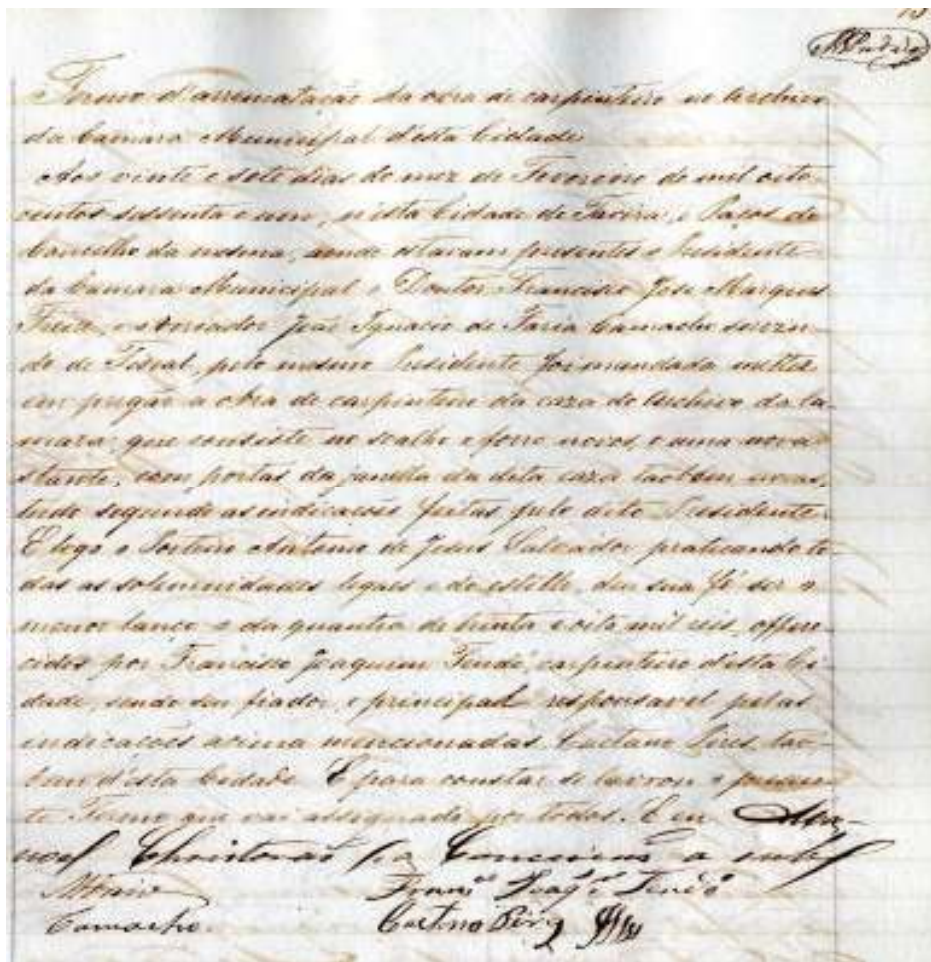 Termo d'arrematação da obra de carpinteiro no Archivo
da Camara Municipal d'esta Cidade
Aos vinte e sete dias do mez de Fevereiro de mil oito
centos sessenta e um, n'esta Cidade de Tavira, e Paços do
Concelho da mesma, aonde estavam presentes o Presidente
da Camara Municipal o Doutor Francisco José Marques
Freire, e o Vereador José Ignacio de Faria Camacho servin-
do de Fiscal, pelo mesmo Presidente foi mandada metter
em pregão a obra de carpinteiro da caza do Archivo da Ca-
mara, que consiste no soalho e forro novos, e uma nova
stante, com portas da janella da dita caza tambem novas,
tudo segundo as indicacões feitas pelo dito Presidente.
E logo o Porteiro Antonio de Jesus Salvador, praticando to-
das as solemnidades legaes e do estillo, deu sua fé ser o
menor lanço o da quantia de trinta e oito mil reis, offere
cidos por Francisco Joaquim carpinteiro d'esta Ci-
dade, sendo seu fiador, e principal responsavel pelas
indicacões acima mencionadas, Caetano Pires, tam-
bem d'esta Cidade. E para constar se lavrou o presen-
te Termo que vai assignado por todos. E eu Ma-
noel Christovão da Conceição o
Franc.co Joaq.m
Camacho. Caetano Pires